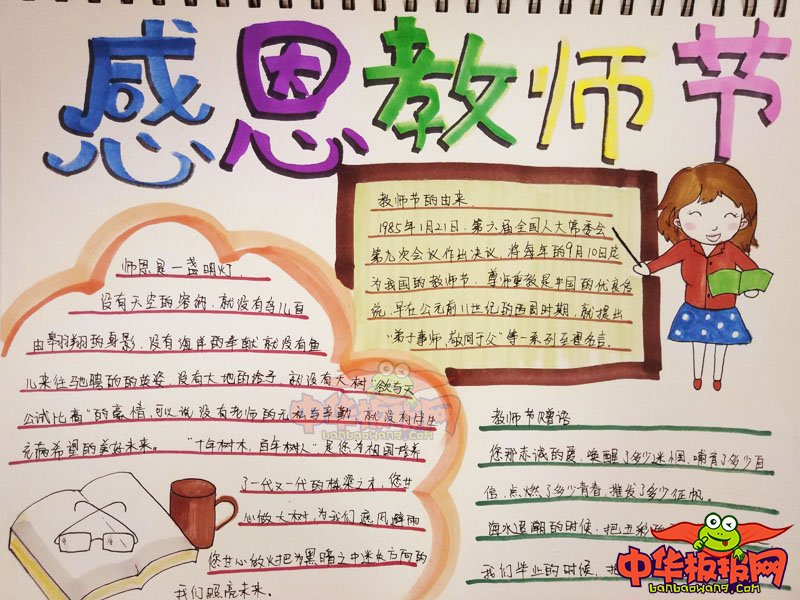 感恩教师节
教师节的由来
1985年1月21日，第六届全国人大常委会
第九次会议作出决议，将每年的9月10日定
为我国的教师节，尊师重教是中国的优良传
说，早在公元前11世纪的西周时期，就提出
“弟子事师，敬同于父”等一系列至理名言。
师恩是一盏明灯，
没有天空的容纳，就没有鸟儿自
由翱翔的身影，没有海洋的奉献就没有鱼
儿来往驰骋的的英姿，没有大地的给予，就没有大树“欲与天
公试比高”的豪情，可以说没有老师的无私与辛勤，就没有伴生
充满希望的美好未来。“十年树木，百年树人”是您为祖国培养
了一代又一代的栋梁之才，您甘
心做大树，为我们遮风避雨
您甘心做火把为黑暗之中迷失方向的
我们照亮未来。
教师节赠语
您那赤诚的爱，唤醒了多少迷惘，哺育了多少自
信，点燃了多少青春，摧发了多少征帆。
海水退潮的时候，把五彩
我们毕业的时候，把
中华板报网
banbaowang.com
中华板报网
banbaowang.com